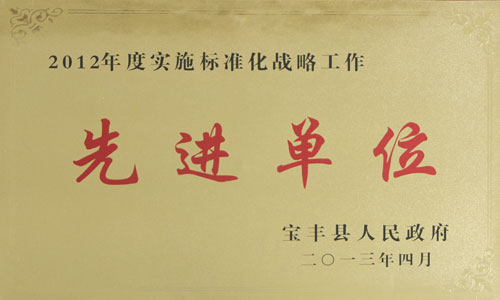 2012年度实施标准化战略工作
先进单位
宝丰县人民政府
二〇一三年四月